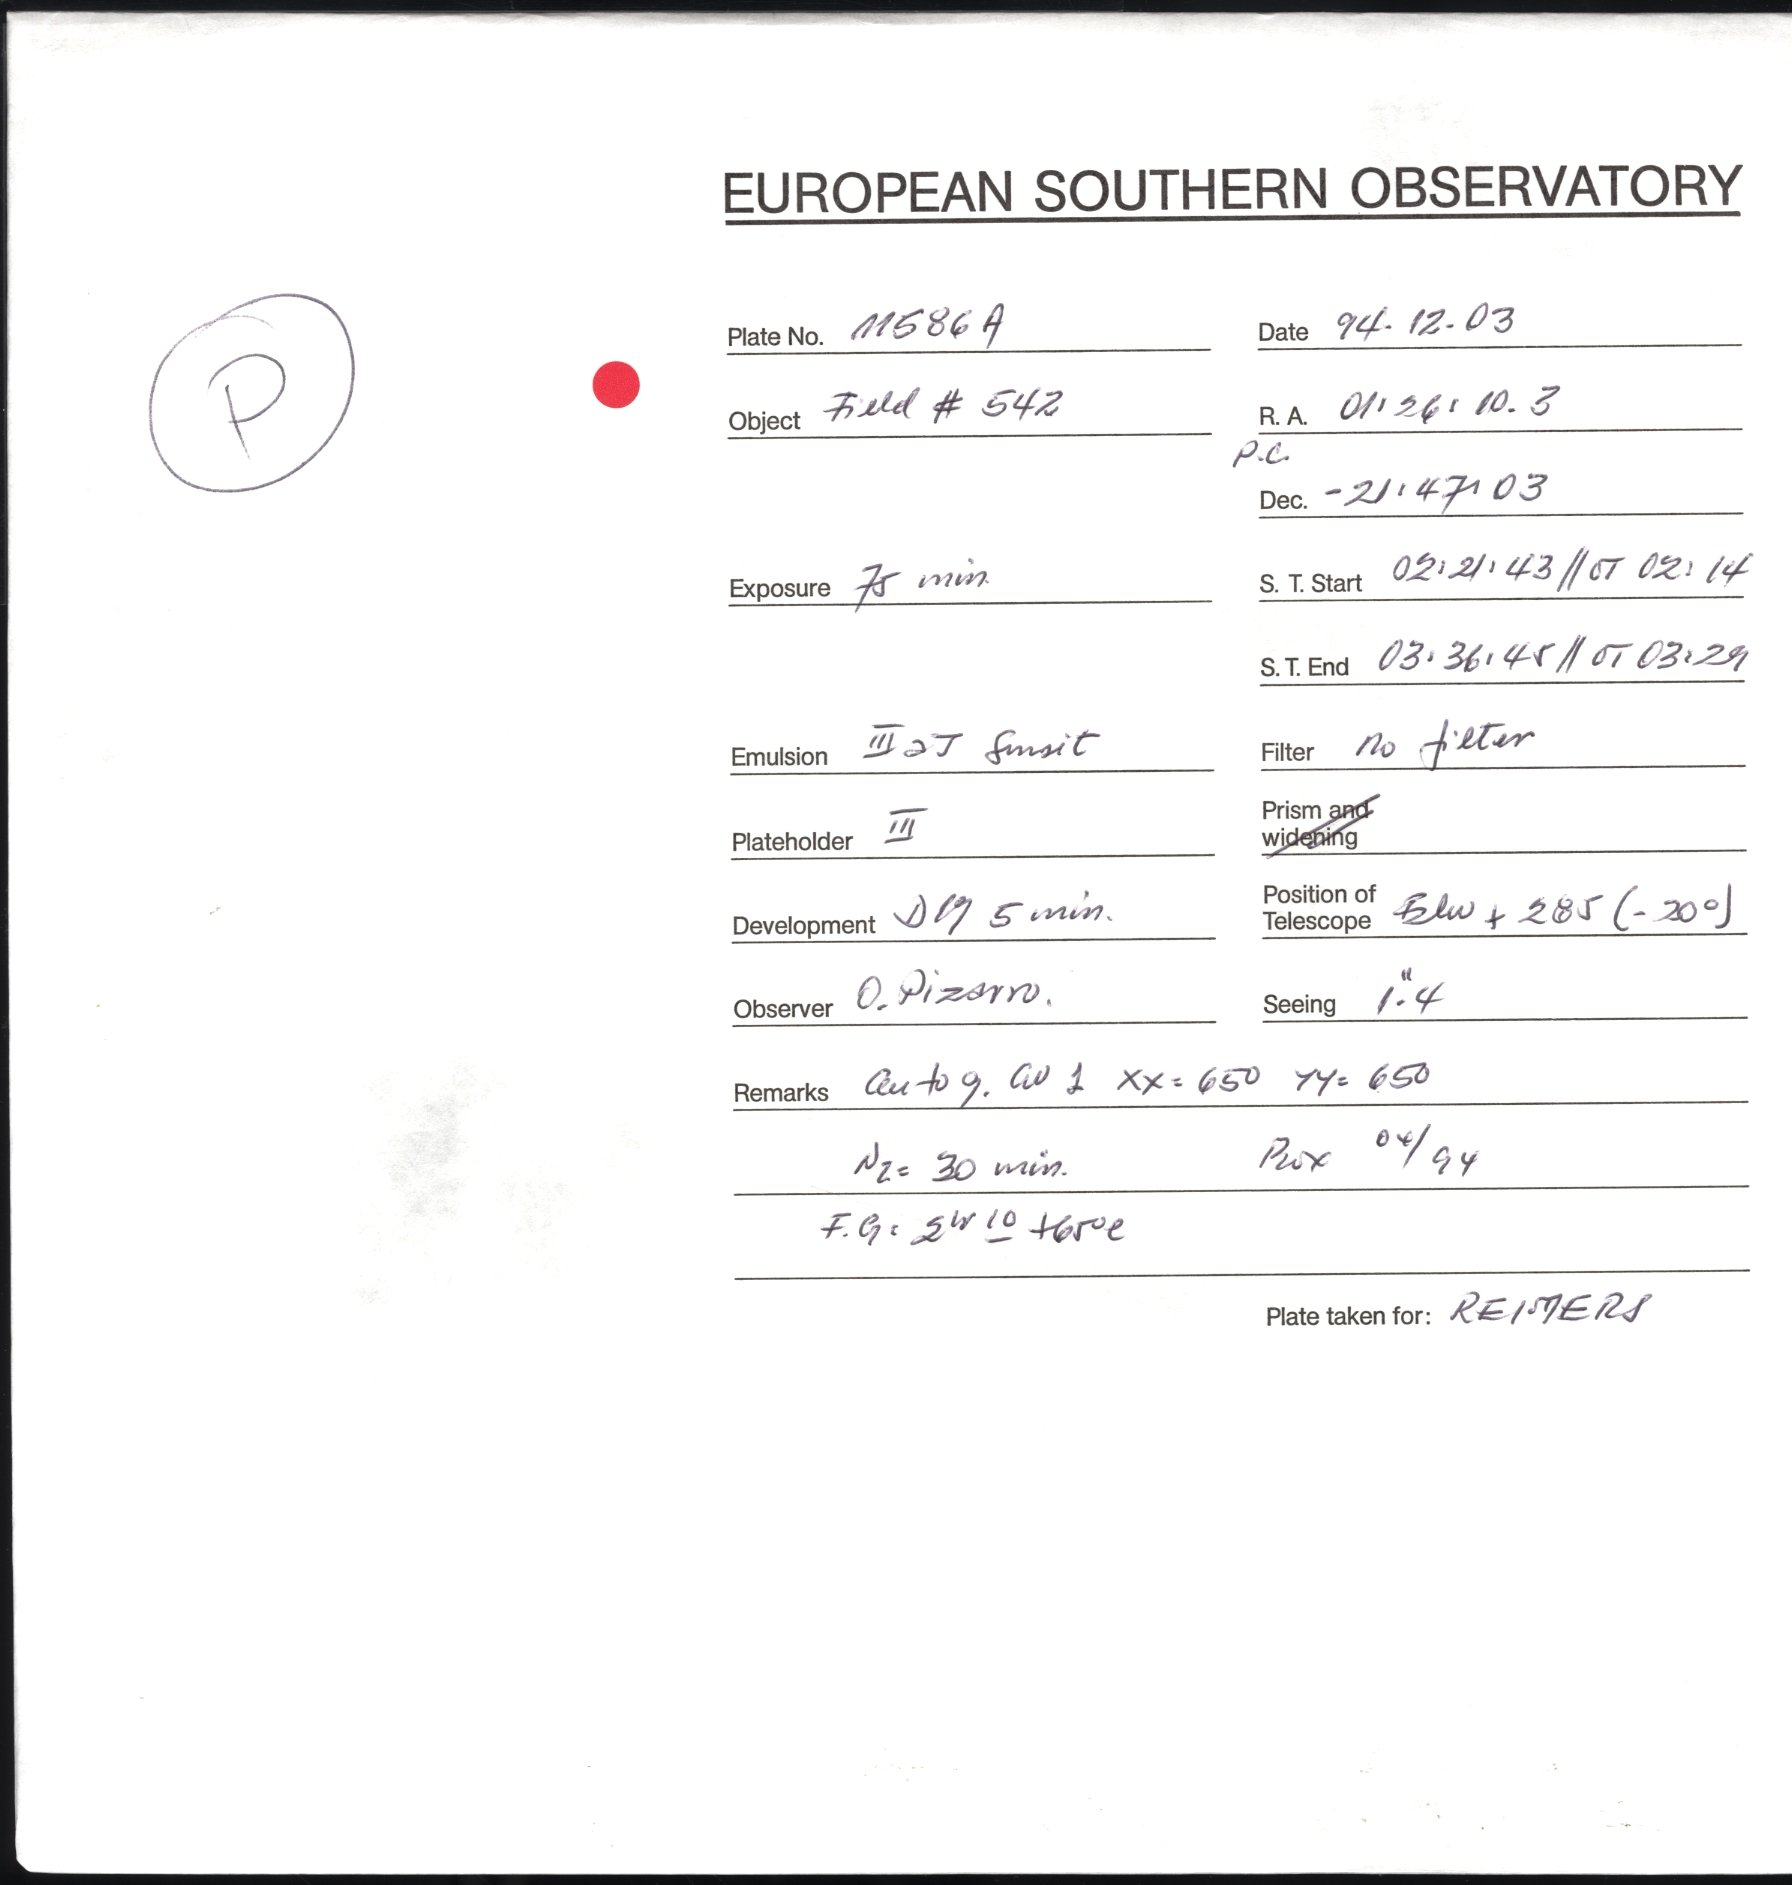 EUROPEAN SOUTHERN OBSERVATORY
P
Plate No. 11586A Date 94.12.03
Object Field # 542 R. A. 01:26:10.3
P.C.
Dec. -21:47:03
Exposure 75 min. S. T. Start 02:21:43 // UT 02:14
S. T. End 03:36:45 // UT 03:29
Emulsion III aJ Filter no filter
Plateholder III Prism and
widening
Development D19 5 min. Position of
Telescope + 285 (-20°)
Observer O. Pizarro. Seeing 1".4
Remarks Autog. XX= 650 YY= 650
N2= 30 min. 04/94
F.G:
Plate taken for: REIMERS